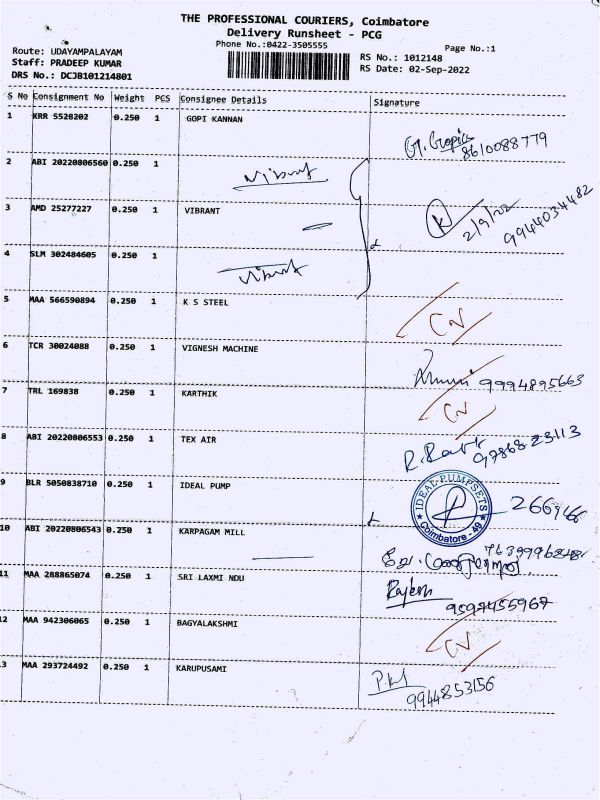 THE PROFESSIONAL COURIERS, Coimbatore
Delivery Runsheet - PCG
Phone No.:0422-3505555
Page No.:1
Route: UDAYAMPALAYAM
Staff: PRADEEP KUMAR
DRS No.: DCJB101214801
RS No.: 1012148
RS Date: 02-Sep-2022
S No Consignment No Weight PCS Consignee Details Signature
1 KRR 5528202 0.250 1 GOPI KANNAN
8610088779
2 ABI 20220806560 0.250 1 Vibrant
3 AMD 25277227 0.250 1 VIBRANT
K 2/9/22 9944034482
4 SLM 302484605 0.250 1 Vibrant
5 MAA 566590894 0.250 1 K S STEEL
CN
6 TCR 30024088 0.250 1 VIGNESH MACHINE
9994895663
7 TRL 169838 0.250 1 KARTHIK
CN
8 ABI 20220806553 0.250 1 TEX AIR
9786823113
9 BLR 5050838710 0.250 1 IDEAL PUMP
IDEAL PUMPSETS
Coimbatore - 49
10 ABI 20220806543 0.250 1 KARPAGAM MILL
11 MAA 288865074 0.250 1 SRI LAXMI NDU
Rajesh
9597455967
12 MAA 942306065 0.250 1 BAGYALAKSHMI
CN
13 MAA 293724492 0.250 1 KARUPUSAMI
9944853156